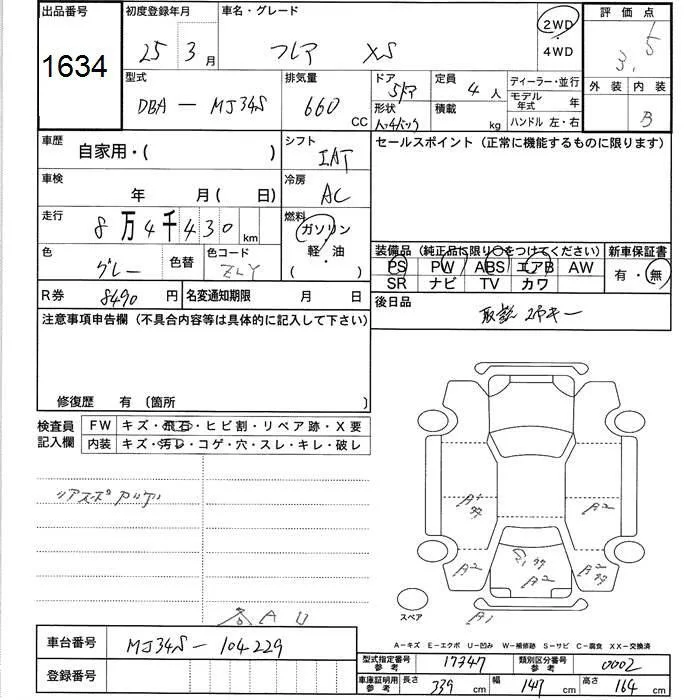 出品番号 初度登録年月 車名・グレード 2WD 評価点
1634 25 3月 フレア XS ・ 3.5
4WD
型式 排気量 ドア 定員 ディーラー・並行 外装 内装
DBA - MJ34S 660 CC 5ドア 4人 モデル年式 年 B
形状 積載 kg ハンドル 左・右
車歴 シフト セールスポイント (正常に機能するものに限ります)
自家用・( ) IAT
車検 冷房
年 月 ( 日) AC
走行 燃料
8万4千430km ガソリン
・
軽・油
( )
色 色替 色コード 装備品 (純正品に限り○をつけてください) 新車保証書
グレー ZLY PS PW ABS エアB AW 有・無
SR ナビ TV カワ
R券 8490円 名変通知期限 月 日 後日品
注意事項申告欄 (不具合内容等は具体的に記入して下さい) 取説 スペアキー
修復歴 有 (箇所 )
検査員記入欄 FW キズ・飛石・ヒビ割・リペア跡・X要
内装 キズ・汚レ・コゲ・穴・スレ・キレ・破レ
A2 A2
A2 A2 A2
A1
スペア
A U
A-キズ E-エクボ U-凹み W-補修跡 S-サビ C-腐食 XX-交換済
車台番号 MJ34S-104229
登録番号
型式指定番号参考 17347 類別区分番号参考 0002
車庫証明用参考 長さ 339cm 幅 147cm 高さ 164cm